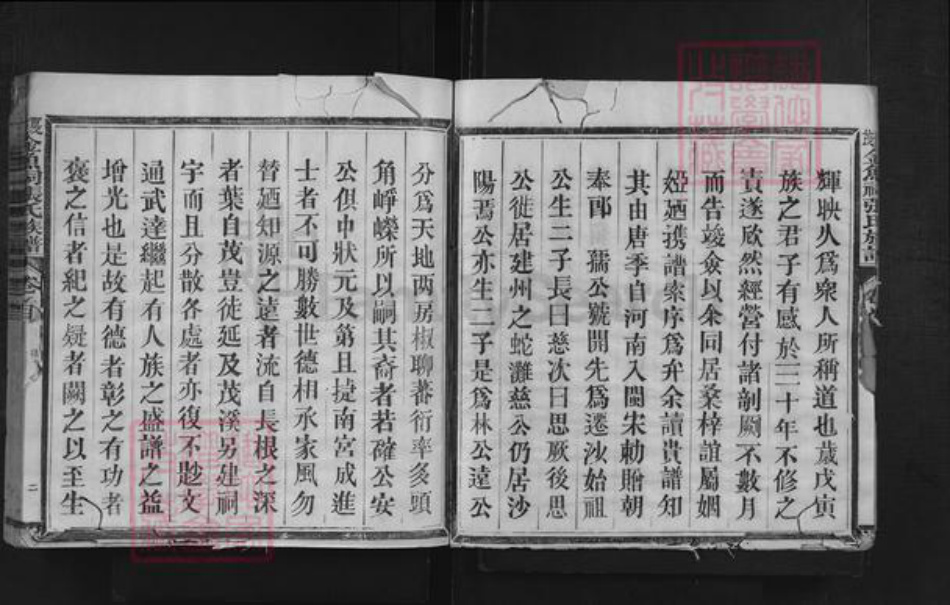 輝映人爲衆人所稱道也歲戊寅
族之君子有感於三十年不修之
責遂欣然經營付諸剞劂不數月
而告竣僉以余同居桑梓誼屬姻
婭廼携譜索序爲弁余讀貴譜知
其由唐季自河南入閩宋勅贈朝
奉郎 孺公號開先爲遷沙始祖
公生二子長曰慈次曰思厥後思
公徙居建州之蛇灘慈公仍居沙
陽焉公亦生二子是爲林公達公
分爲天地两房椒聊蕃衍率多頭
角崢嶸所以嗣其裔者若確公安
公俱中狀元及第且捷南宮成進
士者不可勝數世德相承家風勿
替廼知源之遠者流自長根之深
者葉自茂豈徒延及茂溪另建祠
宇而且分散各處者亦復不尠文
通武達繼起有人族之盛譜之益
增光也是故有德者彰之有功者
褒之信者紀之疑者闕之以至生
張氏族譜
卷首
二